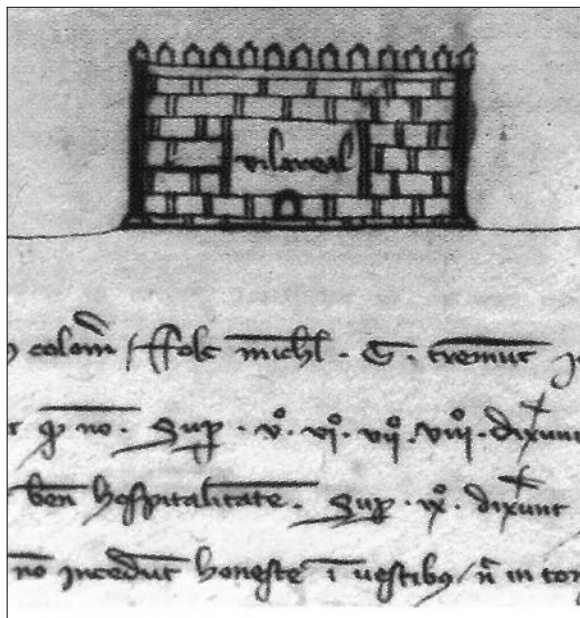 vilareal
colom̄ / ffolc mich̄l . G . tremut
qᵈ no . Sup̄ . vº . viº . viiº . viiiº . dixunt
ben̄ hospitalitate . Sup̄ . ixº . dixunt
nō incedūt honeste ī uestibꝫ / n̄ in